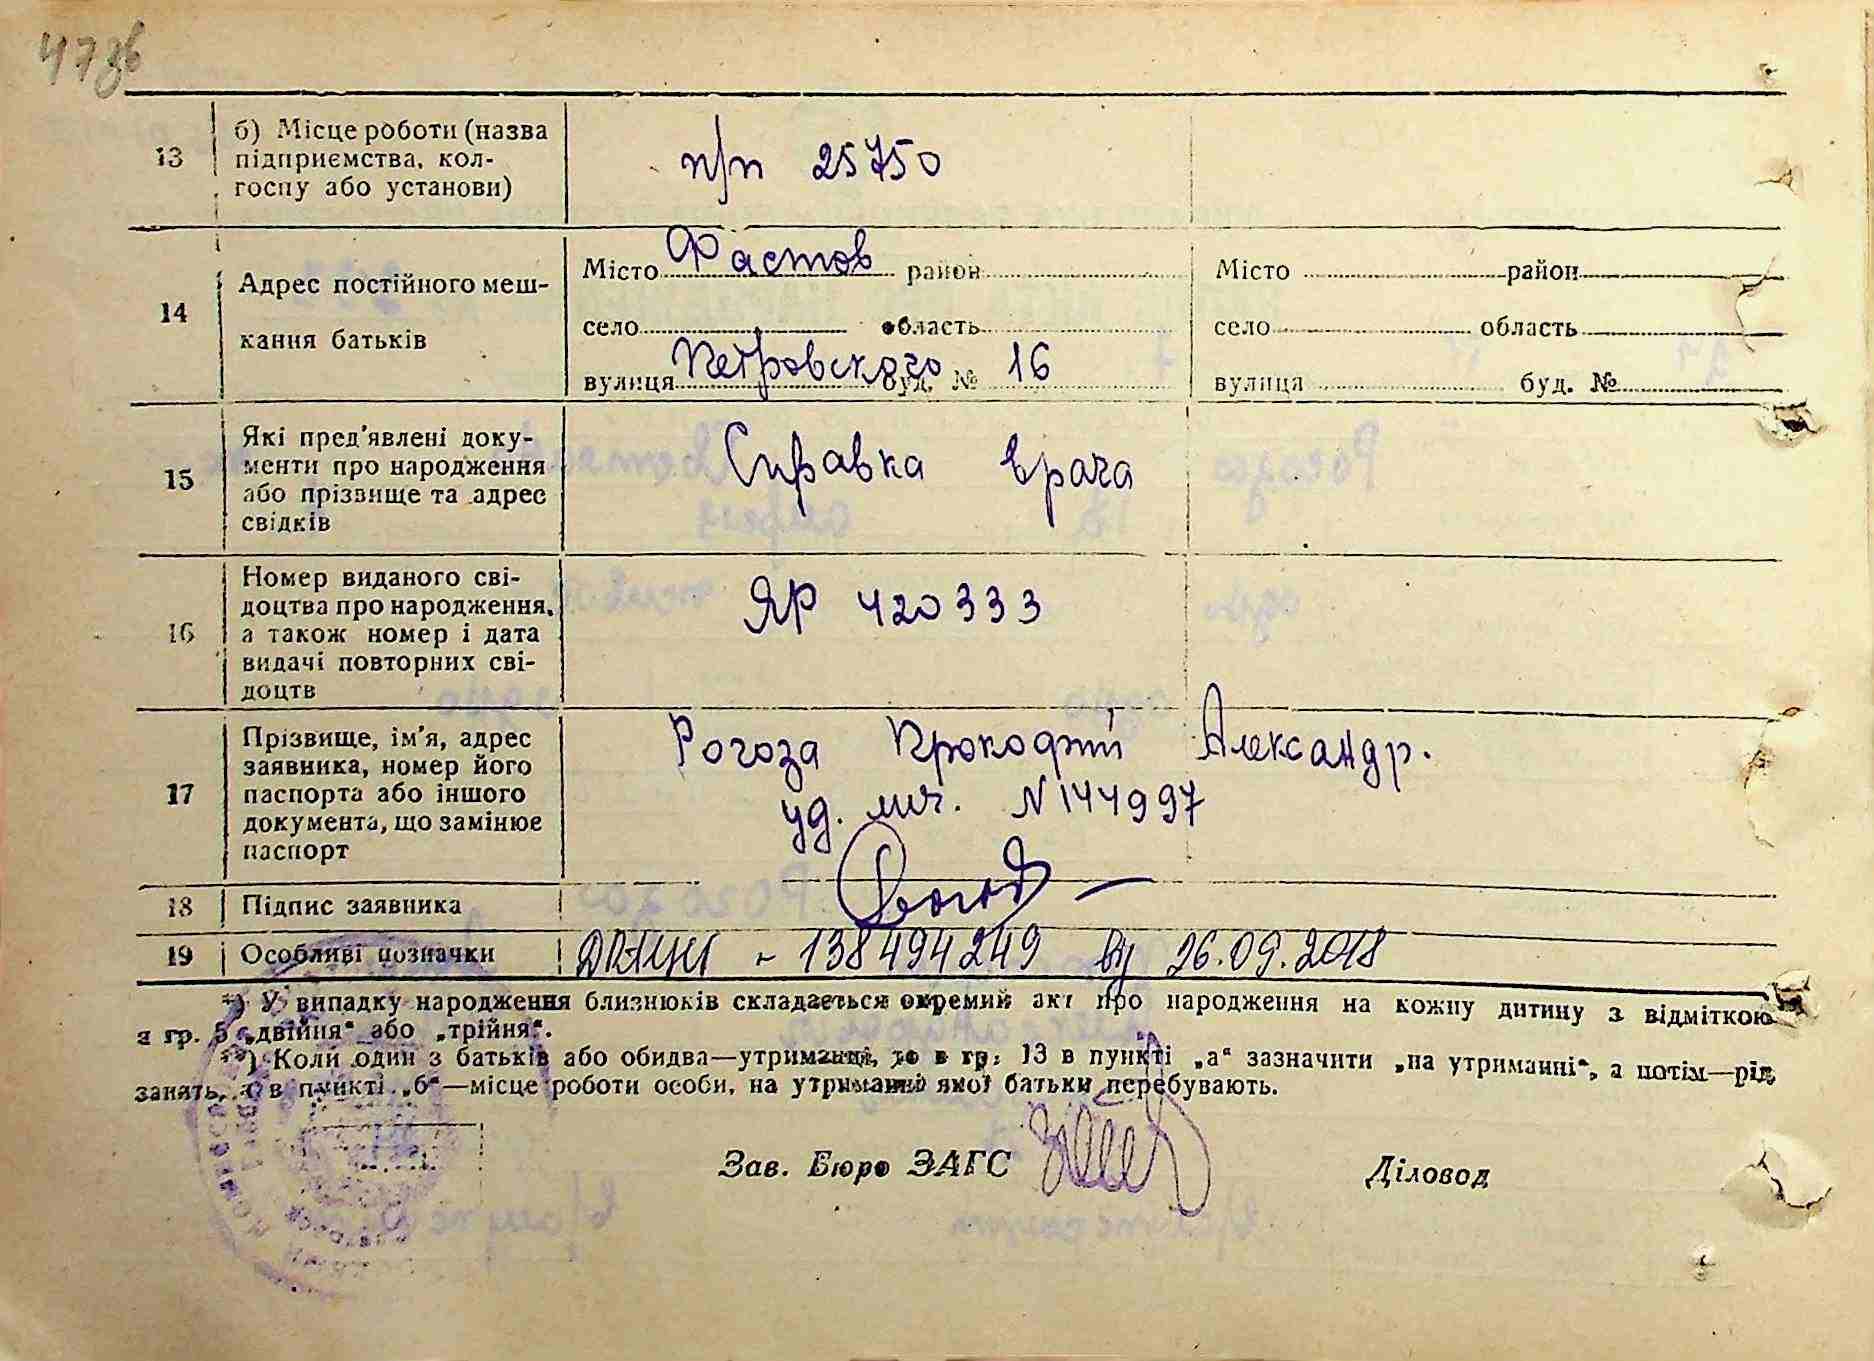 47зв
13 б) Місце роботи (назва
підприємства, кол-
госпу або установи)
п/п 25750
14 Адрес постійного меш-
кання батьків
Місто Фастов район
село область
вулиця Петровского буд. № 16
Місто район
село область
вулиця буд. №
15 Які пред'явлені доку-
менти про народження
або прізвище та адрес
свідків
Справка врача
16 Номер виданого сві-
доцтва про народження,
а також номер і дата
видачі повторних сві-
доцтв
ЯР 420333
17 Прізвище, ім'я, адрес
заявника, номер його
паспорта або іншого
документа, що замінює
паспорт
Рогоза Прокофий Александр.
уд. лич. N 144997
18 Підпис заявника
19 Особливі позначки
ДРАЦС - 138494249 від 26.09.2018
*) У випадку народження близнюків складається окремий акт про народження на кожну дитину з відміткою
в гр. 5 „двійня“ або „трійня“.
**) Коли один з батьків або обидва—утриманці, то в гр. 13 в пункті „а“ зазначити „на утриманні“, а потім—рід
занять, а в пункті „б“—місце роботи особи, на утриманні якої батьки перебувають.
Зав. Бюро ЗАГС
Діловод